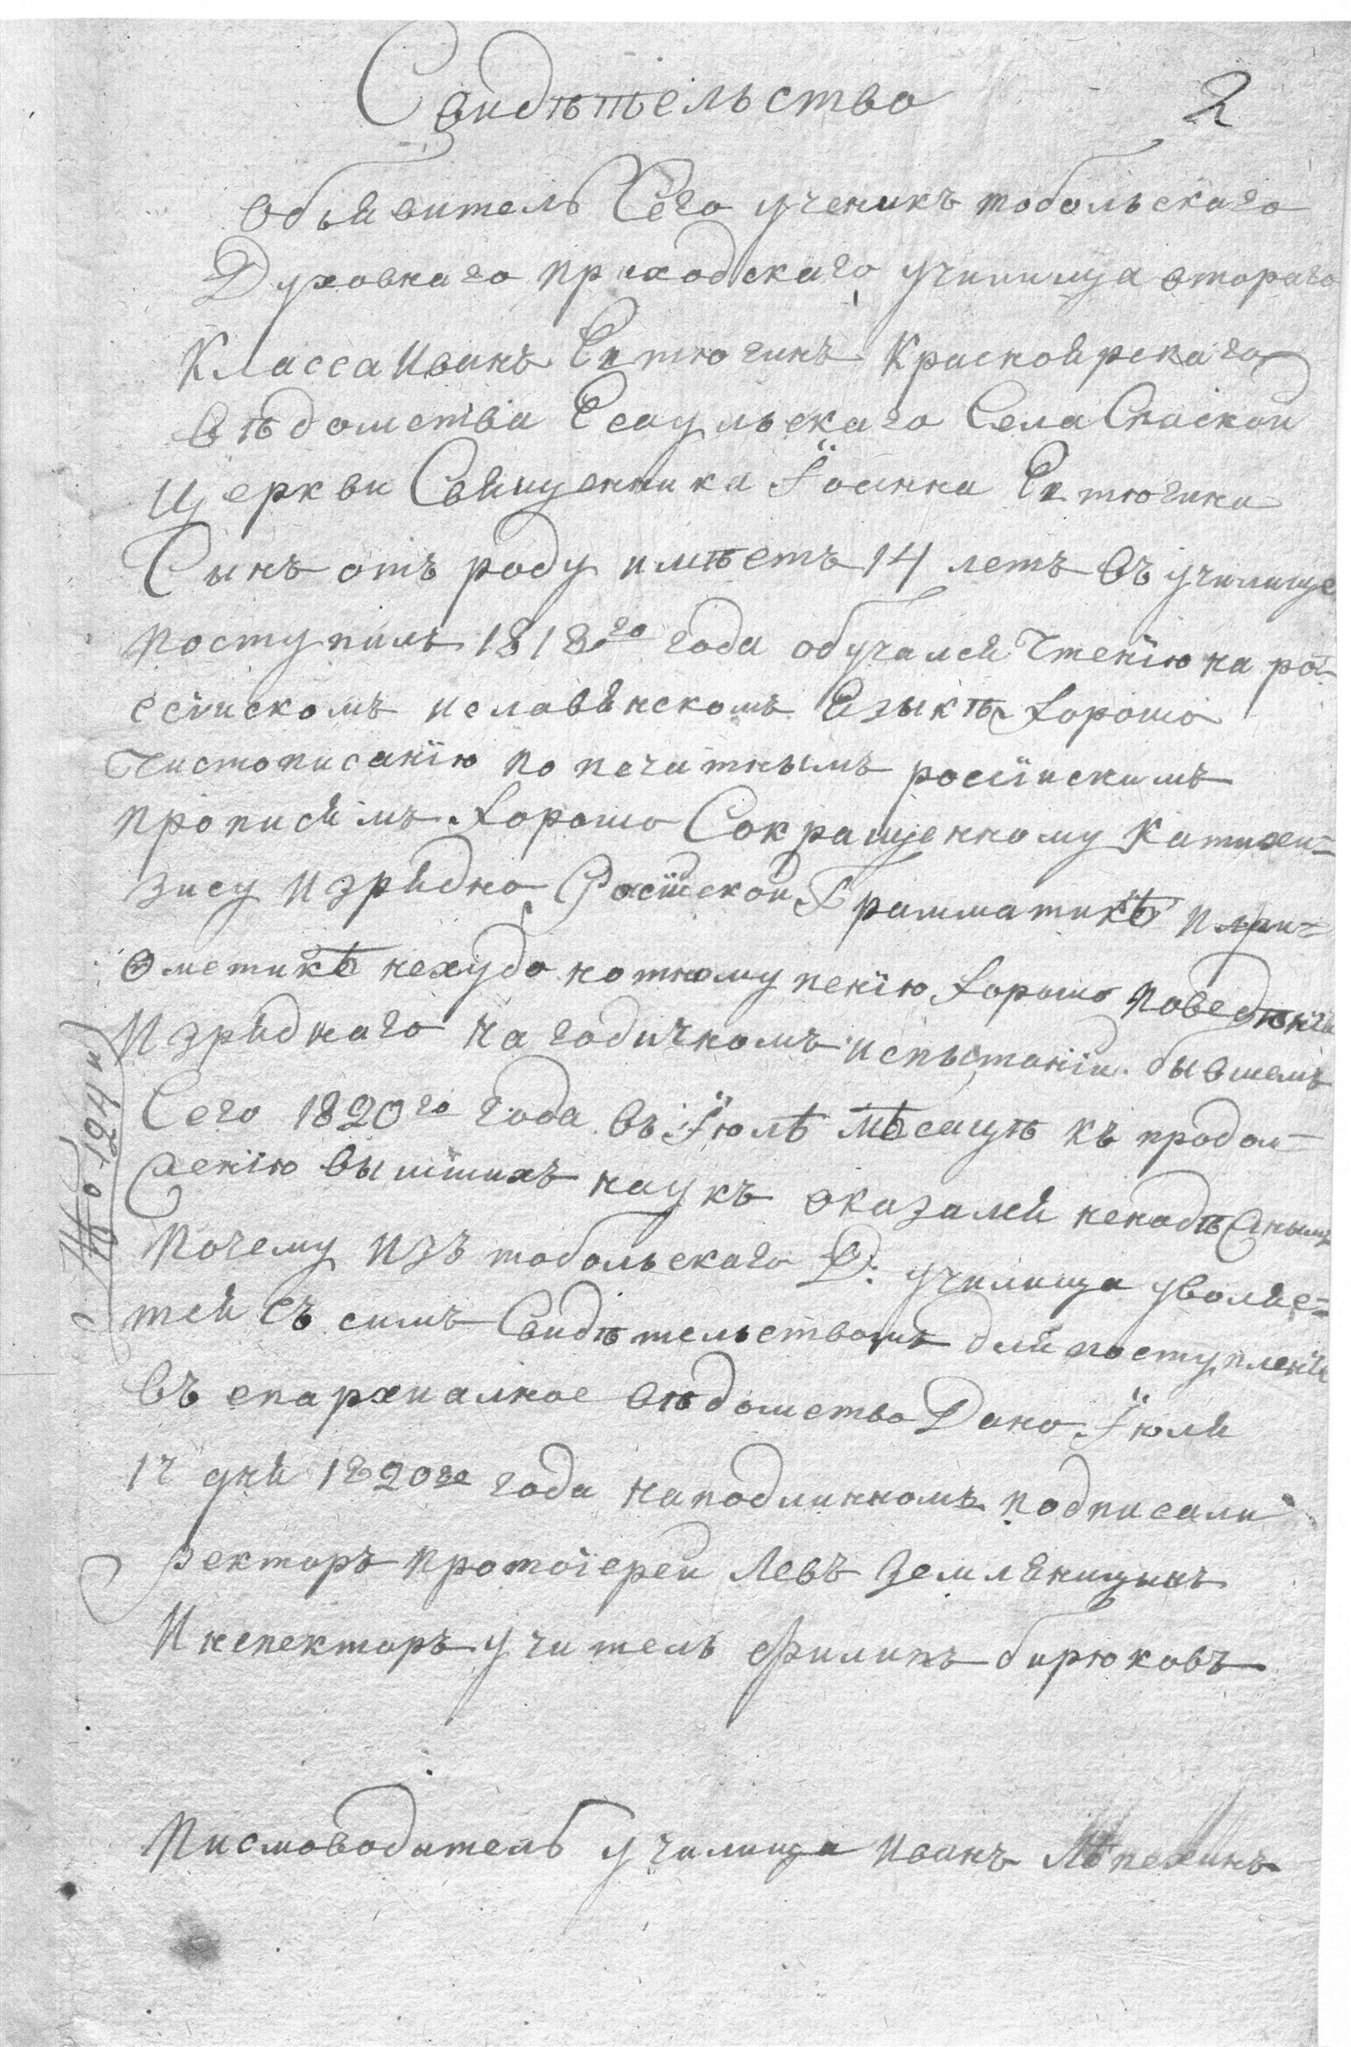 Свидѣтельство 2
Обьявитель Сего ученикъ тобольскаго
Духовнаго приходскаго училища втораго
Класса Иванъ Евтюгинъ Красноярскаго
вѣдомства Есаульскаго Села Спаской
Церкви Священника Іоанна Евтюгина
Сынъ отъ роду имѣетъ 14 летъ въ училище
поступилъ 1818го года обучался Чтенїю на ро-
ссїискомъ иславянскомъ Езыкѣ хорошо
Чистописанїю по печатнымъ россїискимъ
прописямъ хорошо Сокращенному Катихи=
зису Изрядно Росїйской Грамматикѣ Иари=
ѳметикѣ нехудо нотному пенїю хорошо поведѣнїя
Изряднаго на годичномъ испытанїи бывшемъ
Сего 1820го года въ Іюлѣ мѣсяцѣ къ продол=
женїю вышшихъ наукъ оказался ненадѣжнымъ
Почему Изъ тобольскаго Д: училища уволяе=
тся съ симъ Свидѣтельствомъ для поступленїя
въ епархиалное вѣдомство Дано Іюля
17 дня 1820го года наподлинномъ подписали
ректоръ протоїереи Левъ Земляницынъ
Инспекторъ учитель Филипъ бирюковъ
Писмоводитель училища Иванъ Лѣпехинъ